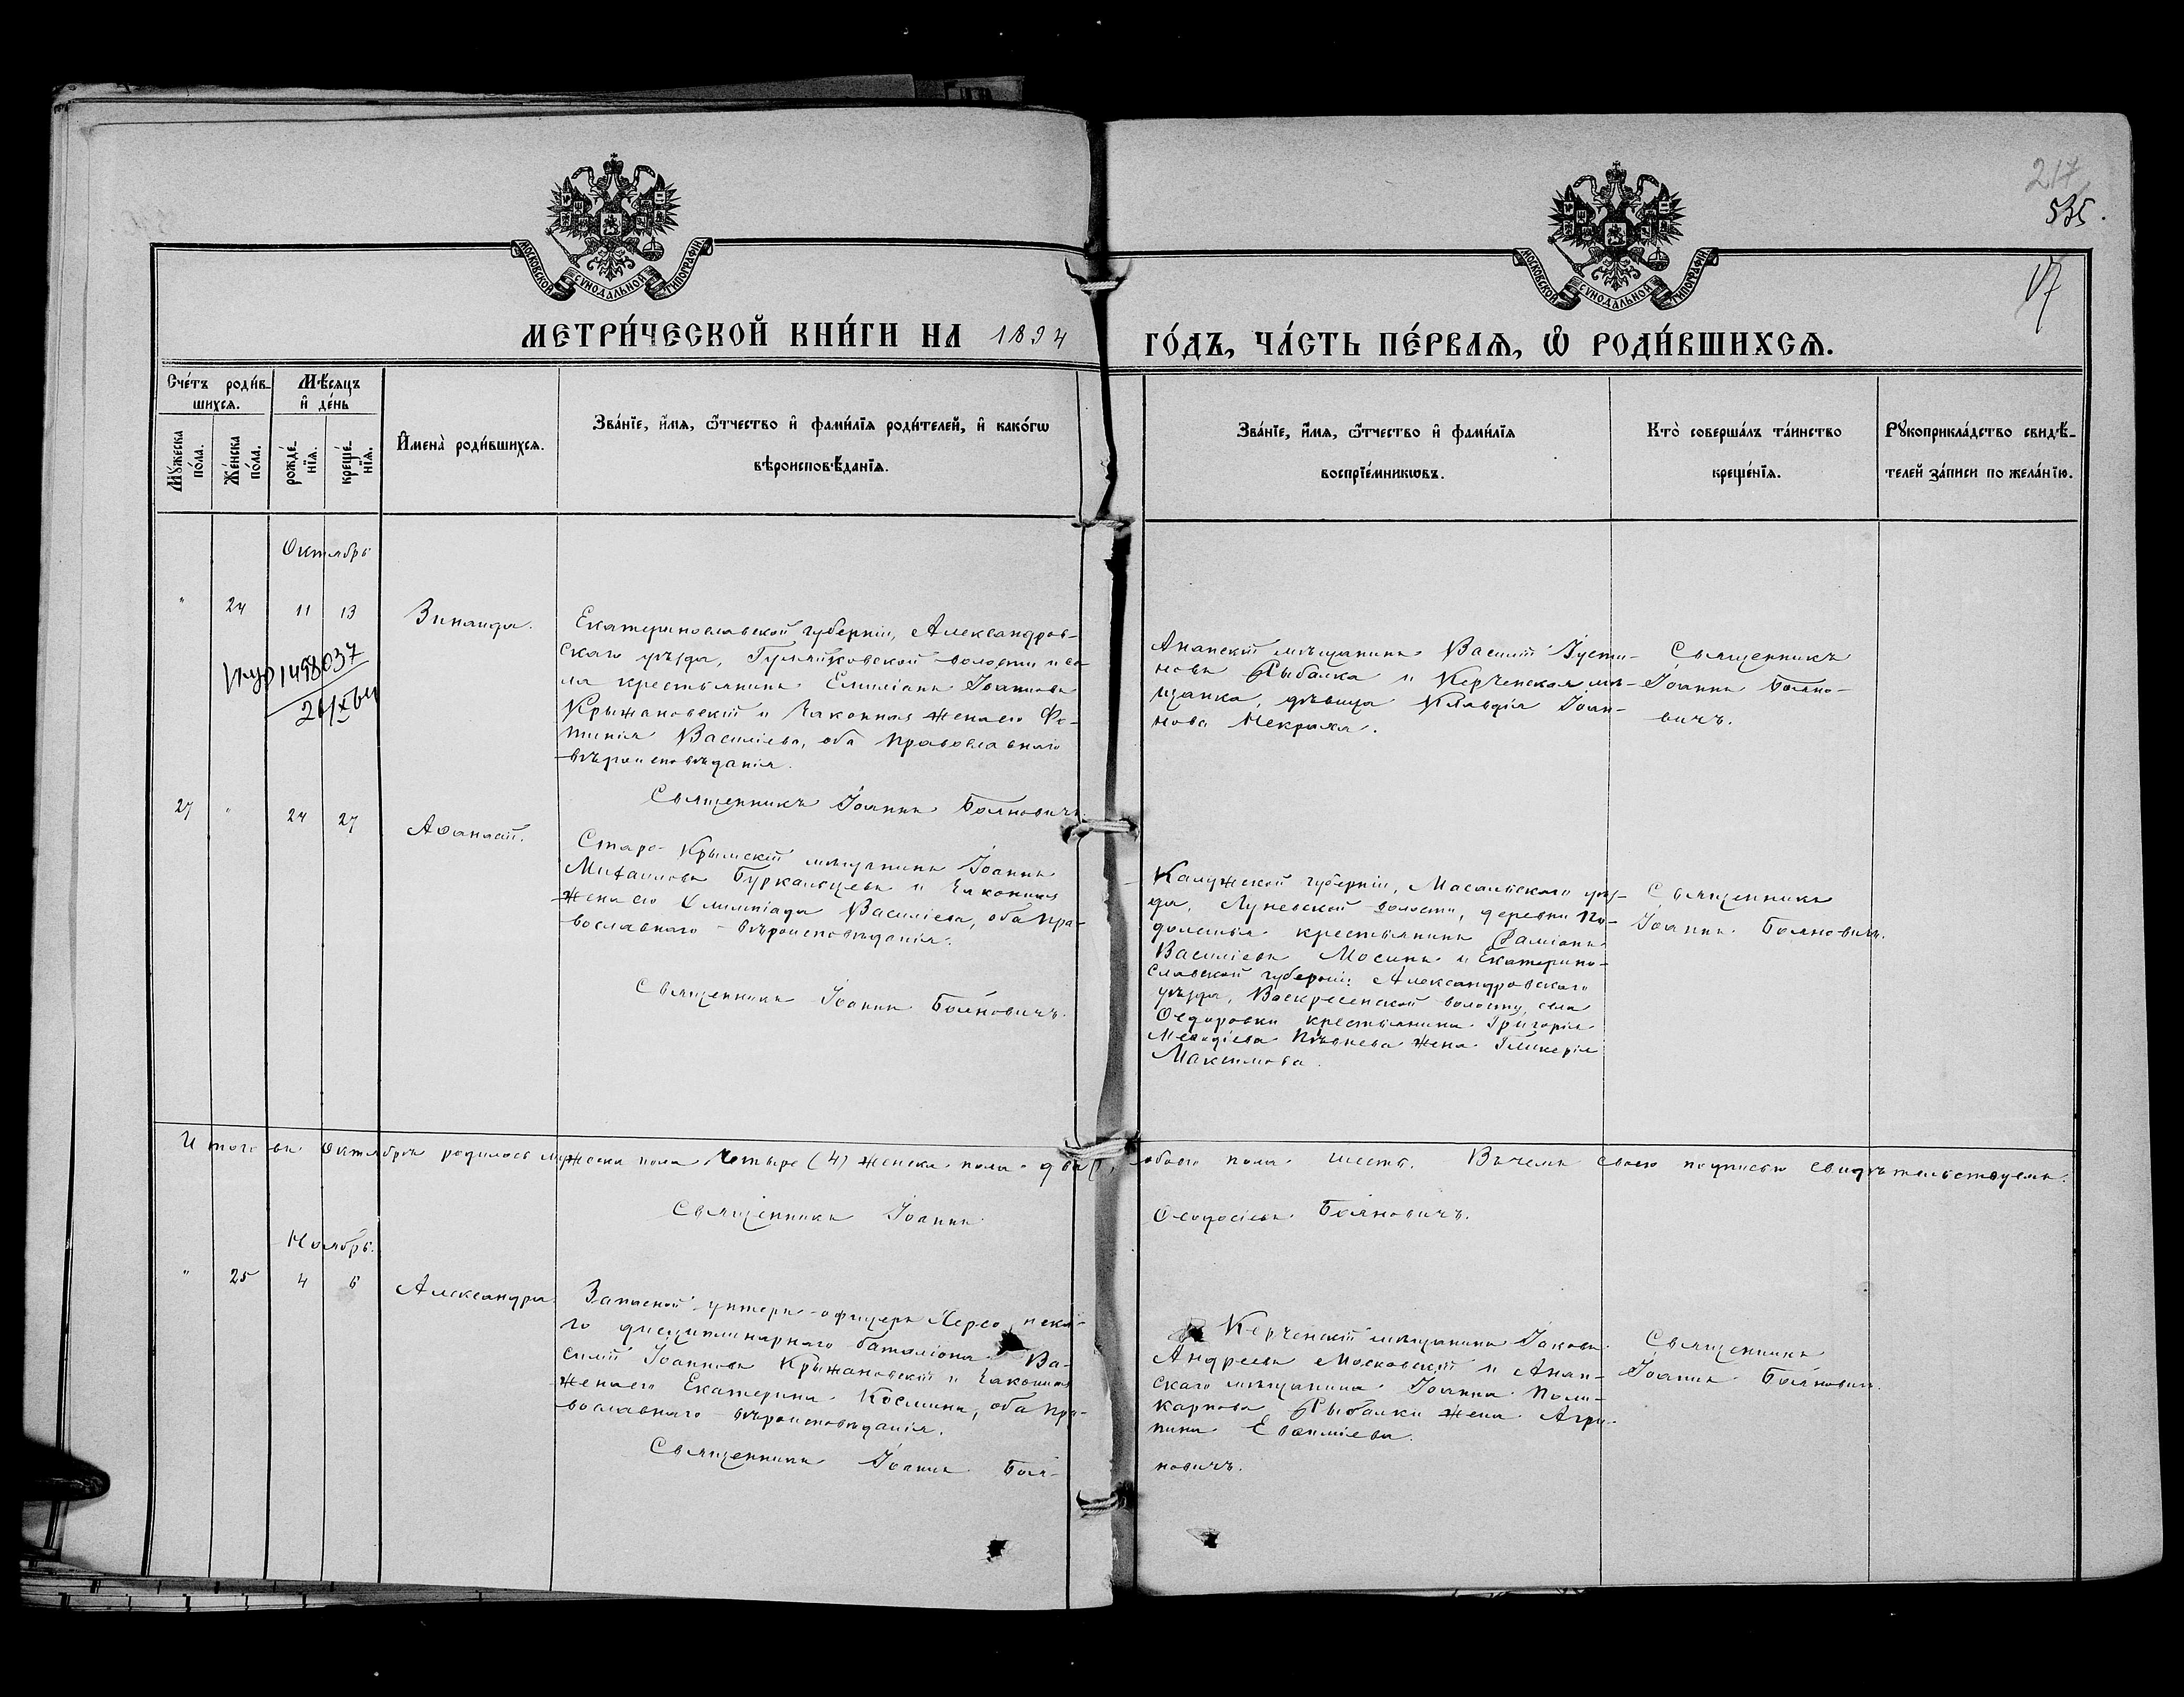 217
535.
17
МОСКОВСКОЙ СУНОДАЛЬНОЙ ТИПОГРАФІИ
МОСКОВСКОЙ СУНОДАЛЬНОЙ ТИПОГРАФІИ
МЕТРИ́ЧЕСКОЙ КНИ́ГИ НА 1894
ГО́ДЪ, ЧА́СТЬ ПЕ́РВАѦ, Ѡ҆ РОДИ́ВШИХСѦ.
Сче́тъ роди́в-
шихсѧ.
Мѣ́сяцъ
и҆ де́нь
Мꙋ́жеска
по́ла.
Же́нска
по́ла.
рожде́-
нїѧ.
креще́-
нїѧ.
И҆мена̀ роди́вшихсѧ.
Зва́нїе, и҆́мѧ, ѻ҆́тчество и҆ фами́лїѧ роди́телей, и҆ како́гѡ
вѣроисповѣ́данїѧ.
Зва́нїе, и҆́мѧ, ѻ҆́тчество и҆ фами́лїѧ
воспрїе́мникѡвъ.
Кто̀ соверша́лъ та́инство
креще́нїѧ.
Рꙋкоприкла́дство свидѣ́-
телей за́писи по жела́нїю.
Октябрь
" 24 11 13 Зинаида.
Екатеринославской губерніи, Александров-
скаго уѣзда, Гуляйковской волости и се-
ла крестьянинъ Емиліанъ Іоанновъ
Крыжановскій и законная жена его Фо-
тинія Васильева, оба православнаго
вѣроисповѣданія.
Священникъ Іоаннъ Бояновичъ.
Анапскій мѣщанинъ Василій Іусти-
новъ Рыбалка и Керченская мѣ-
щанка, дѣвица Клавдія Іоан-
нова Некраха.
Священникъ
Іоаннъ Бояно-
вичъ.
1498037
27 " 24 27 Аѳанасій.
Старо-Крымскій мѣщанинъ Іоаннъ
Михаиловъ Бурканцевъ и законная
жена его Олимпіада Васильева, оба пра-
вославнаго вѣроисповѣданія.
Священникъ Іоаннъ Бояновичъ.
Калужской губерніи, Масальскаго уѣз-
да, Луневской волости, деревни По-
долетья крестьянинъ Даміанъ
Васильевъ Мосинъ и Екатерино-
славской губерніи Александровскаго
уѣзда, Воскресенской волости, села
Ѳедоровки крестьянина Григорія
Меѳодіева Пѣвнева жена Гликерія
Максимова.
Священникъ
Іоаннъ Бояновичъ.
Итого въ Октябрѣ родилось мужеска пола четыре (4) женска пола два обоего пола шесть. Въ чемъ своею подписью свидѣтельствуемъ.
Священникъ Іоаннъ
Ѳеодосіевъ Бояновичъ.
Ноябрь.
" 25 4 6 Александра
Запасной унтеръ-офицеръ Херсонска-
го дисциплинарнаго баталіона Ва-
силій Іоанновъ Крыжановскій и законная
жена его Екатерина Космина, оба пра-
вославнаго вѣроисповѣданія.
Священникъ Іоаннъ Боя-
новичъ.
Керченскій мѣщанинъ Іаковъ
Андреевъ Московскій и Анап-
скаго мѣщанина Іоанна Поли-
карпова Рыбалки жена Агри-
пина Евѳиміева.
Священникъ
Іоаннъ Бояновичъ.